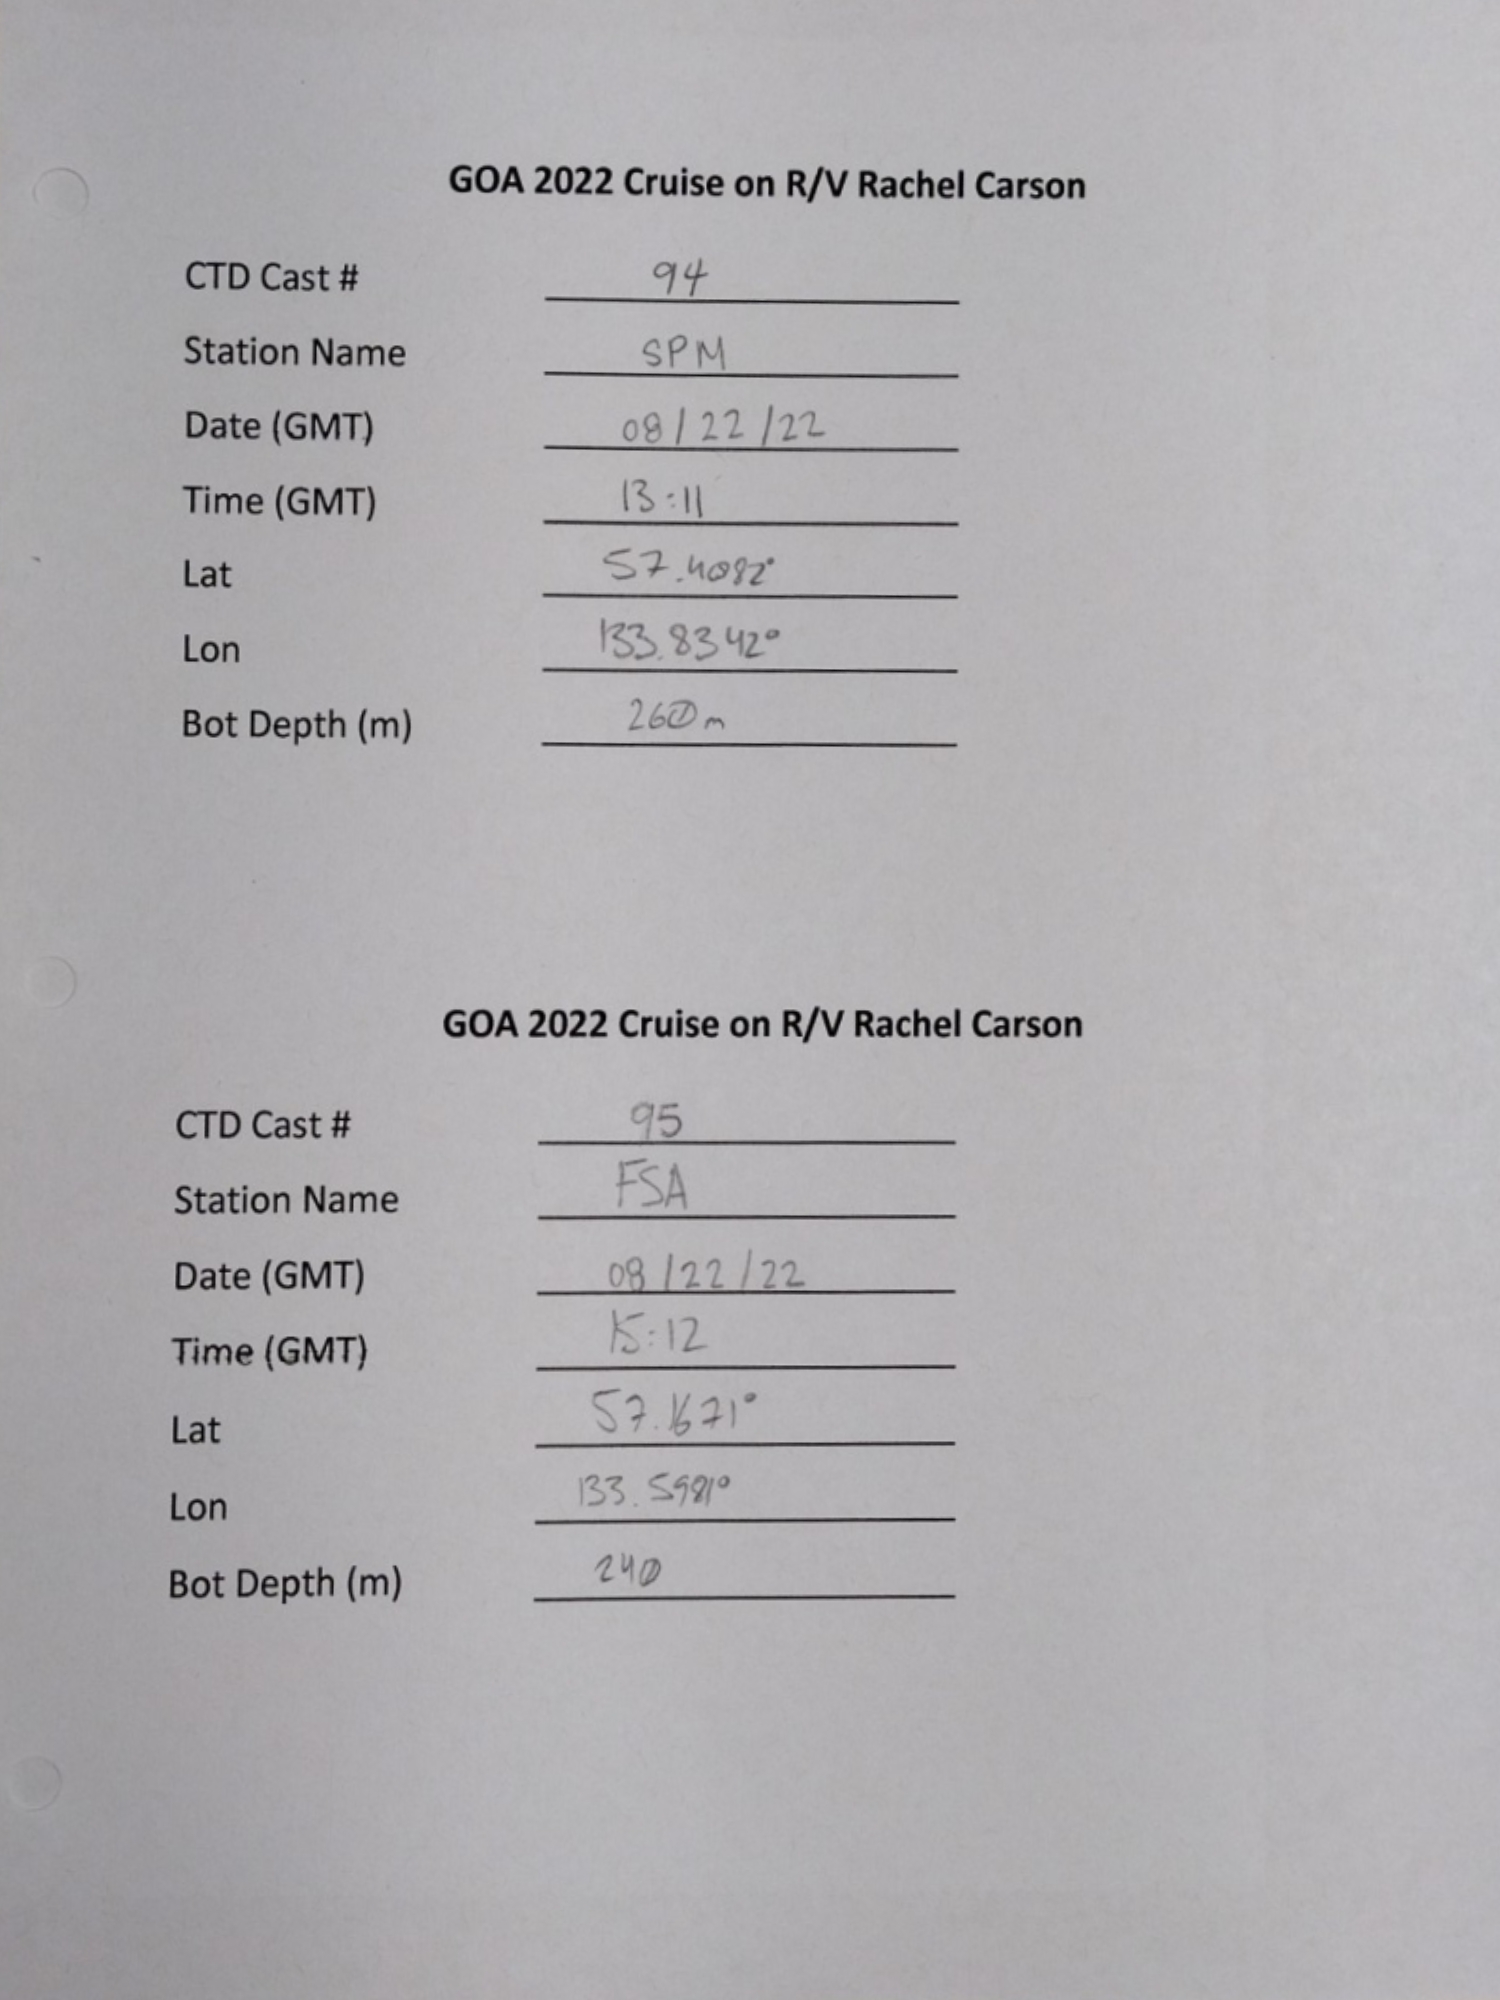 GOA 2022 Cruise on R/V Rachel Carson
CTD Cast # 94
Station Name SPM
Date (GMT) 08/22/22
Time (GMT) 13:11
Lat 57.4082°
Lon 133.8342°
Bot Depth (m) 260m
GOA 2022 Cruise on R/V Rachel Carson
CTD Cast # 95
Station Name FSA
Date (GMT) 08/22/22
Time (GMT) 15:12
Lat 57.1671°
Lon 133.5981°
Bot Depth (m) 240